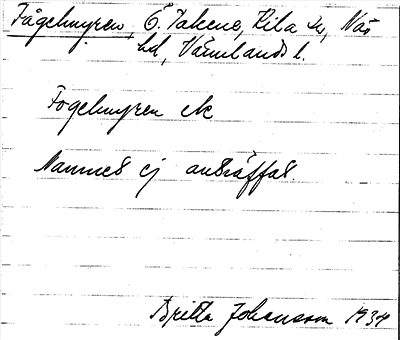 Fågelmyren, Ö. Takene, Kila sn, Näs
hd, Värmlands l.
Fogelmyren ek
Namnet ej anträffat.
Britta Johansson 1934